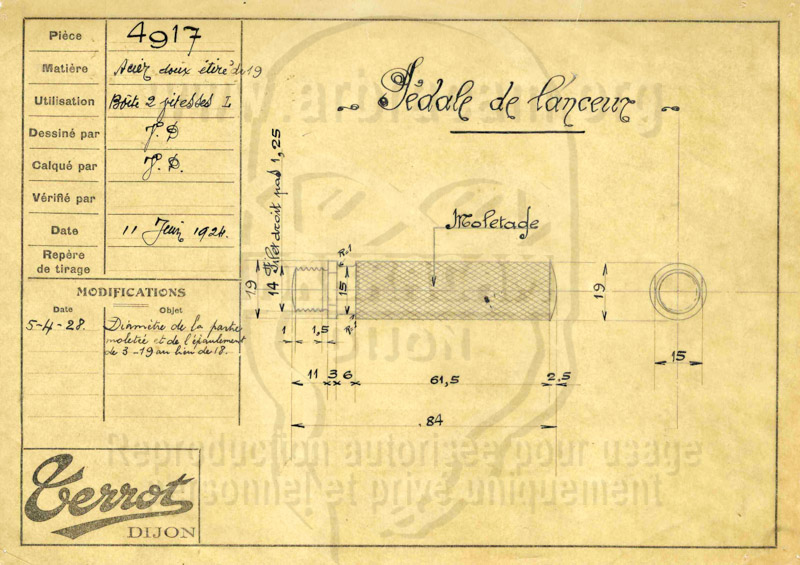 Pièce 4917
Matière Acier doux étiré de 19
Utilisation Boîte 2 vitesses L
Dessiné par J. D
Calqué par J. D.
Vérifié par
Date 11 Juin 1924.
Repère
de tirage
MODIFICATIONS
Date Objet
5-4-28. Diamètre de la partie
moletée et de l'épaulement
de 3 - 19 au lieu de 18.
Terrot
DIJON
Pédale de lanceur
Moletage
Filet droit pas 1,25
19
14
R.1
15
R.1
1
1,5
11 3 6 61,5 2.5
84
19
15
DIJON
Reproduction autorisée pour usage
personnel et privé uniquement